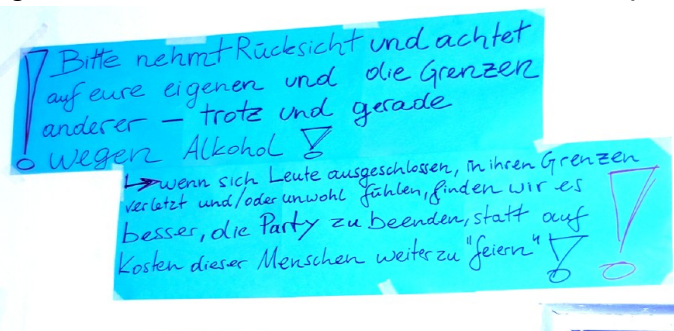 ! Bitte nehmt Rücksicht und achtet
auf eure eigenen und die Grenzen
anderer – trotz und gerade
wegen Alkohol !
↳ wenn sich Leute ausgeschlossen, in ihren Grenzen
verletzt und/oder unwohl fühlen, finden wir es
besser, die Party zu beenden, statt auf
Kosten dieser Menschen weiter zu "feiern" ! !